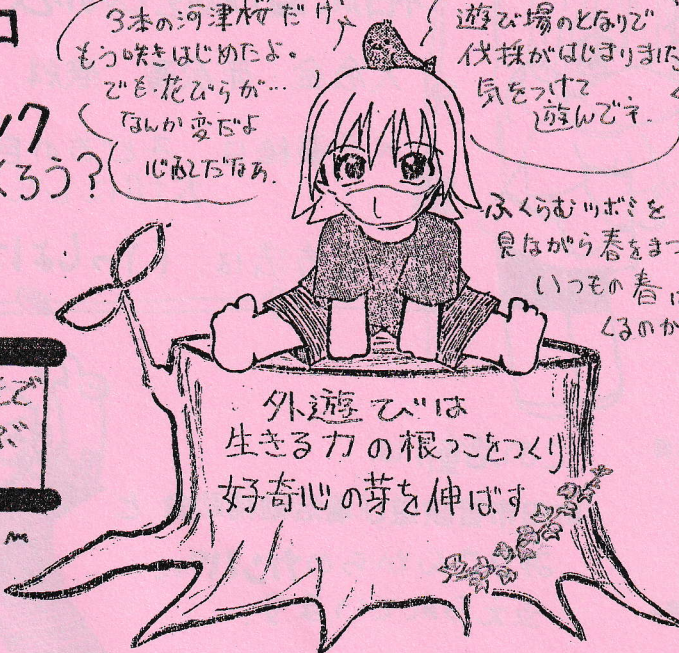 コ
ック
くろう?
3本の河津桜だけ
もう咲きはじめたよ。
でも・花びらが…
なんか変だよ
心配だなぁ.
遊び場のとなりで
伐採がはじまりました
気をつけて
遊んでネ.
ふくらむツボミを
見ながら春をまつ
いつもの春は
くるのか
外遊びは
生きる力の根っこをつくり
好奇心の芽を伸ばす